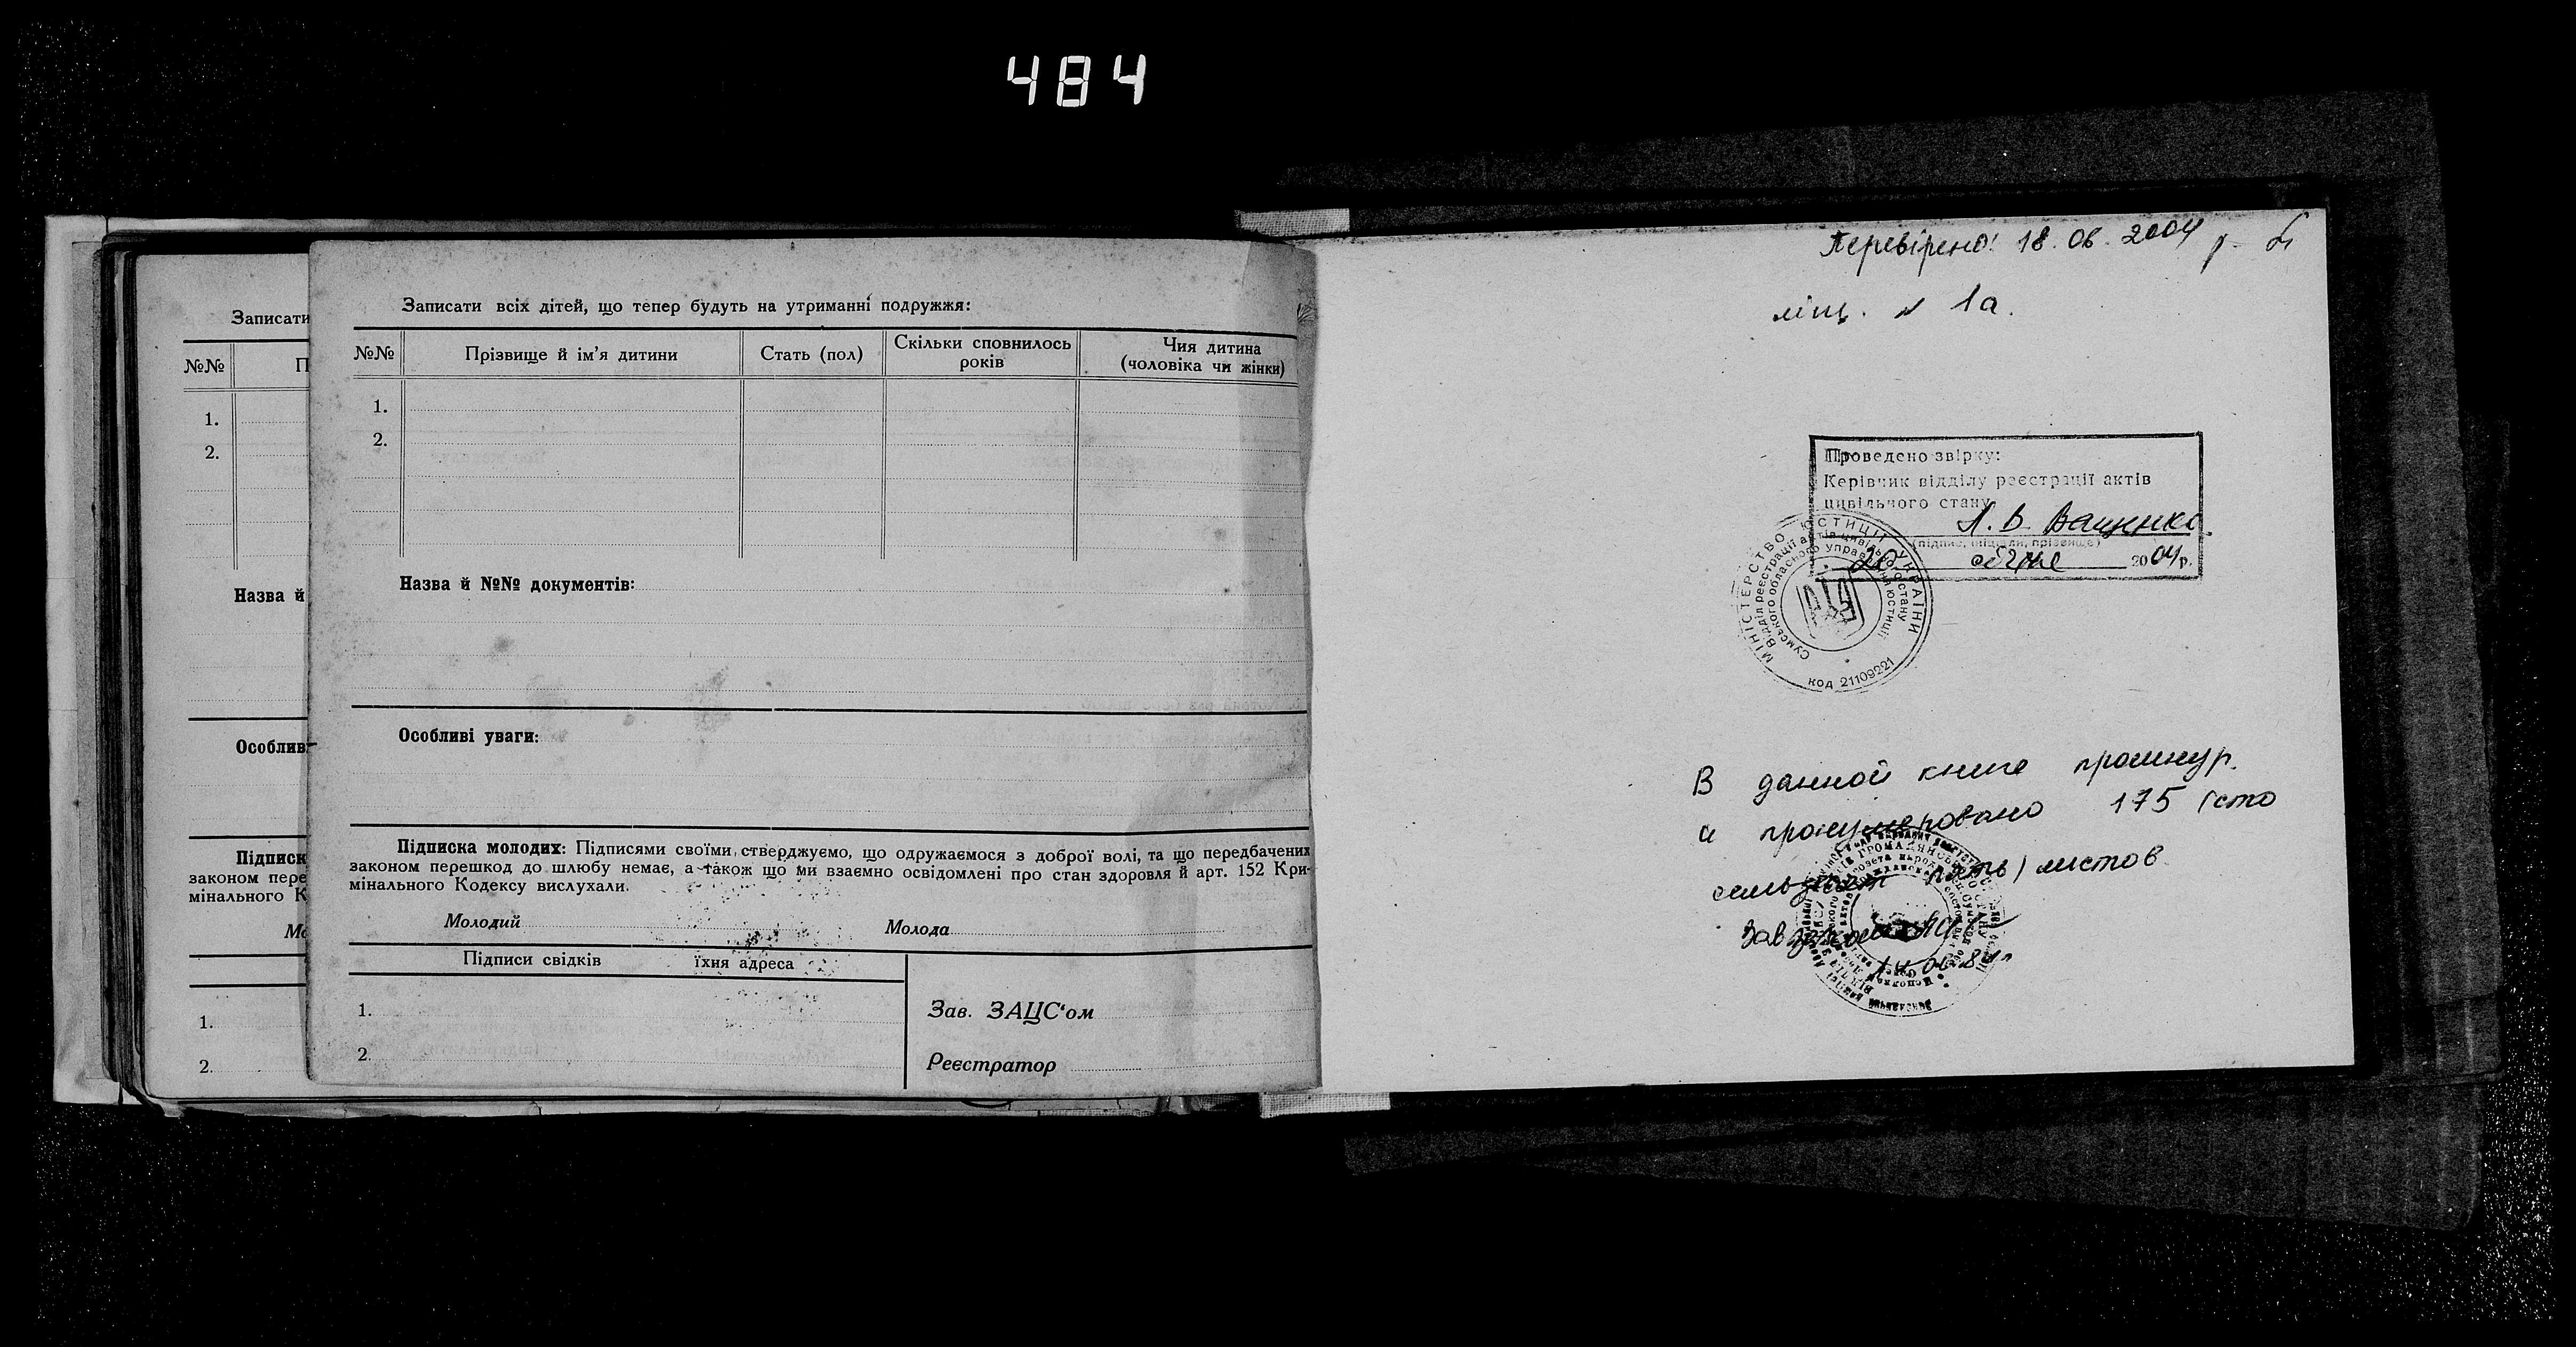 484
Записати
№№
П
1.
2.
Назва й
Особлив
Підписк
законом пере
мінального К
Мо
1.
2.
Записати всіх дітей, що тепер будуть на утриманні подружжя:
№№ Прізвище й ім'я дитини Стать (пол) Скільки сповнилось років Чия дитина (чоловіка чи жінки)
1.
2.
Назва й №№ документів:
Особливі уваги:
Підписка молодих: Підписями своїми стверджуємо, що одружаємося з доброї волі, та що передбачених
законом перешкод до шлюбу немає, а також що ми взаємно освідомлені про стан здоровля й арт. 152 Кри-
мінального Кодексу вислухали.
Молодий Молода
Підписи свідків їхня адреса
1.
2.
Зав. ЗАЦС'ом
Реєстратор
Перевірено! 18. 06. 2004 р.
1а.
Проведено звірку:
Керівник відділу реєстрації актів
цивільного стану
Л. В. Ващенко
(підпис, ініціали, прізвище)
20 січня 2004р.
МІНІСТЕРСТВО ЮСТИЦІЇ УКРАЇНИ
Відділ реєстрації актів цивільного стану
Сумського обласного управління юстиції
код 21109221
В данной книге прошнур.
и пронумеровано 175 (сто
семьдесят пять) листов
Зав